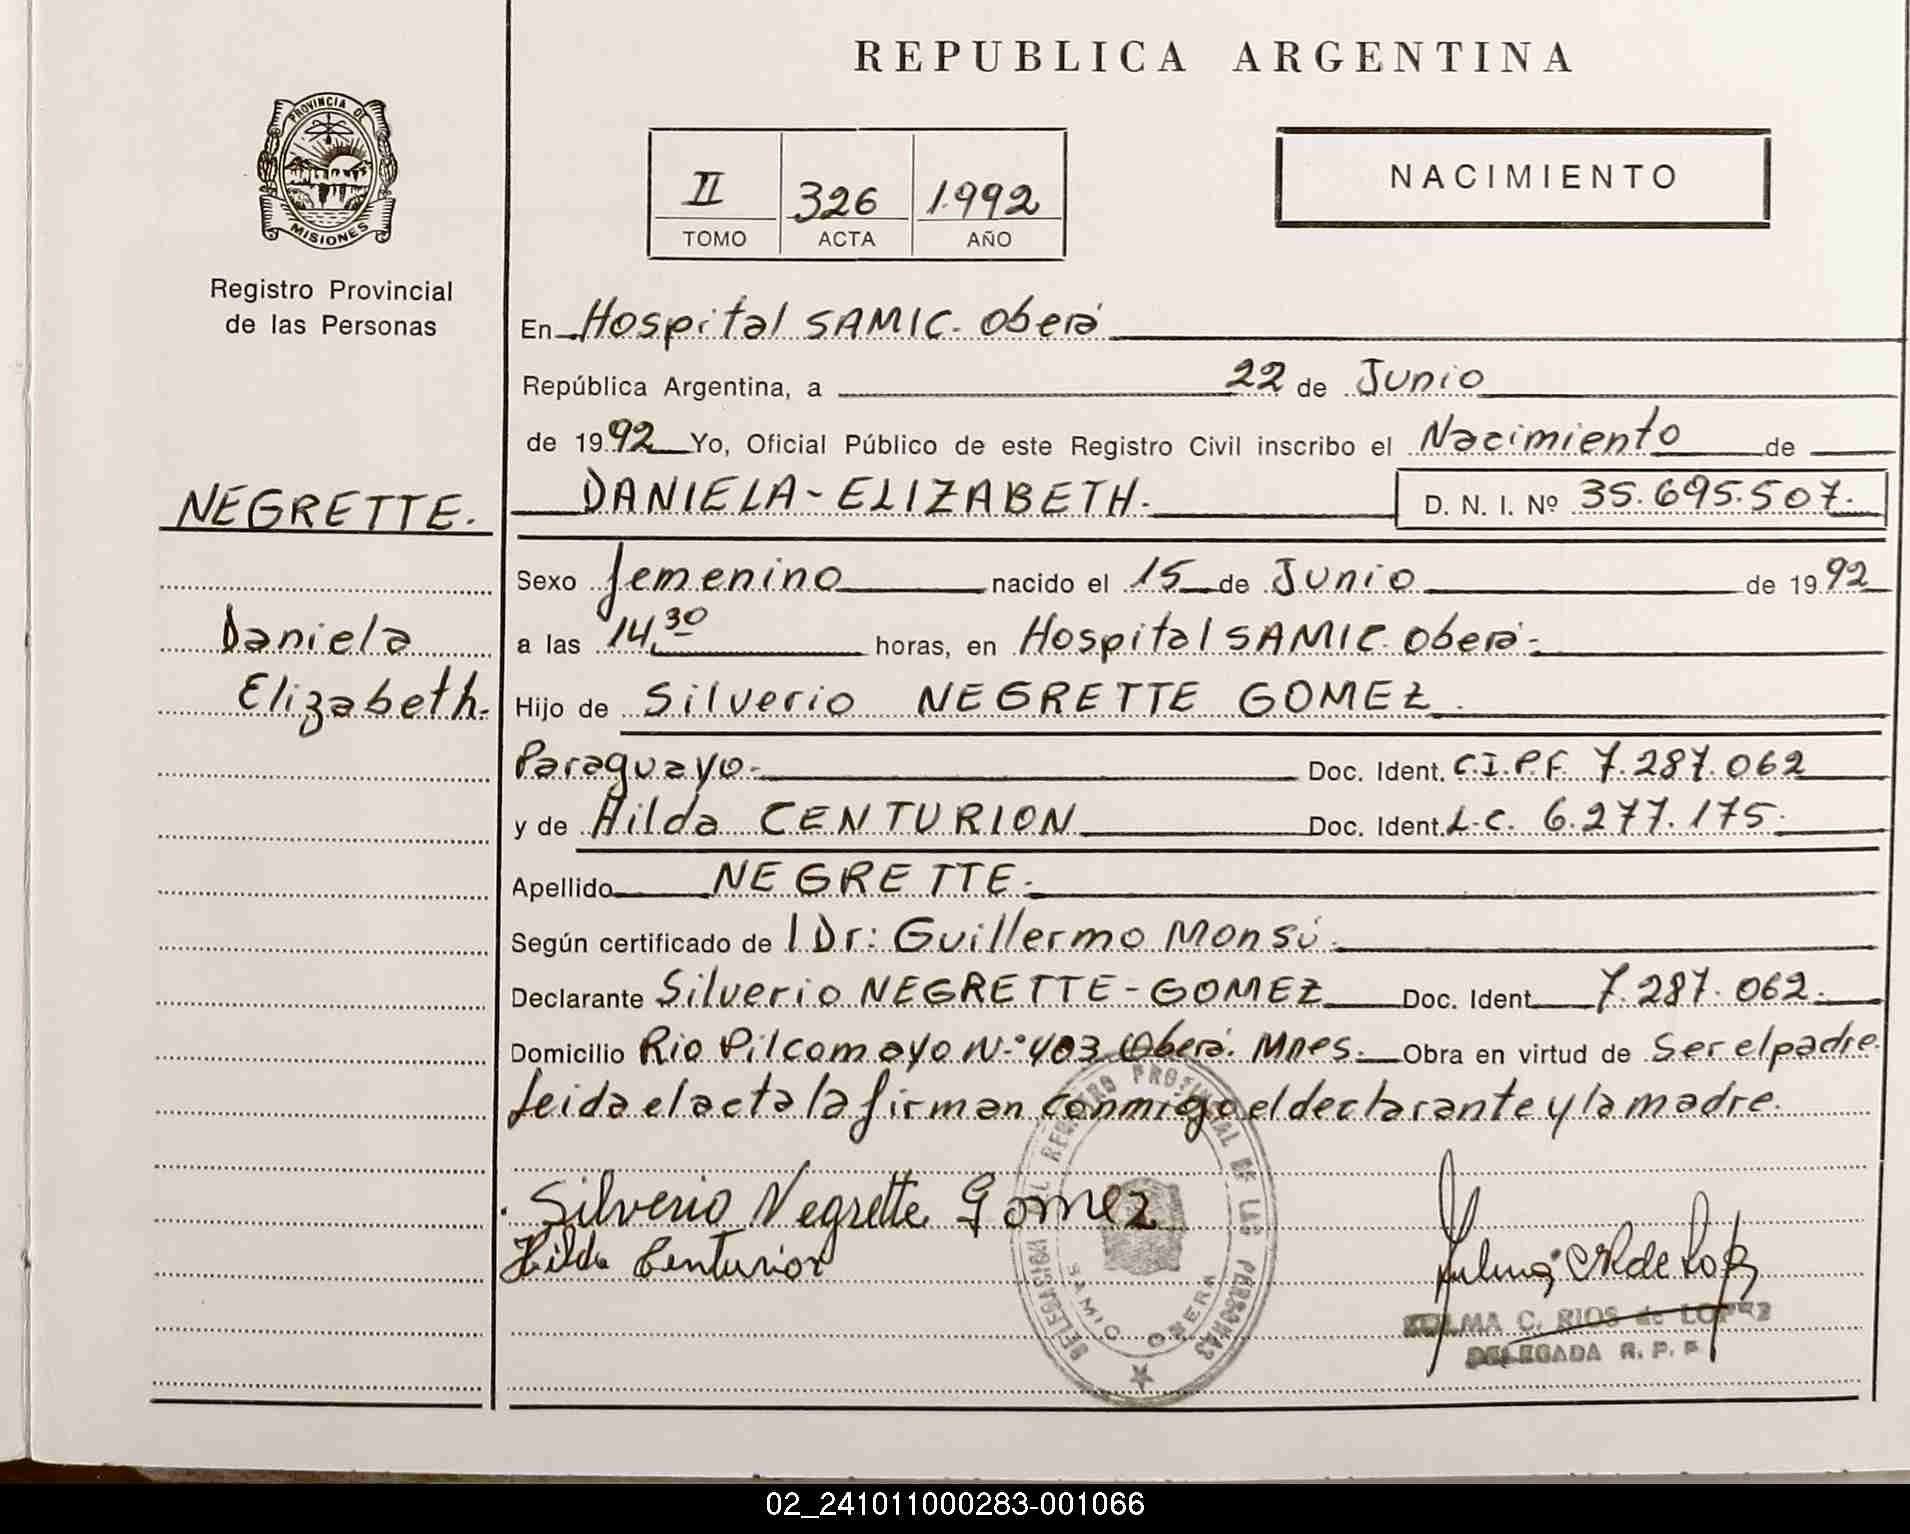 REPUBLICA ARGENTINA
PROVINCIA DE
MISIONES
Registro Provincial
de las Personas
II 326 1.992
TOMO ACTA AÑO
NACIMIENTO
En Hospital SAMIC. Oberá
República Argentina, a 22 de Junio
de 1992 Yo, Oficial Público de este Registro Civil inscribo el Nacimiento de
NEGRETTE.
DANIELA - ELIZABETH. D. N. I. Nº 35.695.507.
Sexo femenino nacido el 15 de Junio de 1992
Daniela
Elizabeth.
a las 14,30 horas, en Hospital SAMIC. Oberá.
Hijo de Silverio NEGRETTE GOMEZ.
Paraguayo. Doc. Ident. C.I.P.F. 7.287.062
y de Hilda CENTURION Doc. Ident. L.C. 6.277.175.
Apellido NEGRETTE.
Según certificado de l Dr: Guillermo Monsú.
Declarante Silverio NEGRETTE - GOMEZ Doc. Ident 7.287.062.
Domicilio Rio Pilcomayo N.º 403 Oberá. Mnes. Obra en virtud de Ser el padre.
Leida el acta la firman conmigo el declarante y la madre.
Silverio Negrette Gomez
Hilda Centurion
DELEGACION REGISTRO PROVINCIAL DE LAS PERSONAS
SAMIC OBERA
ZULMA C. RIOS de LOPEZ
DELEGADA R. P. P.
02_241011000283-001066